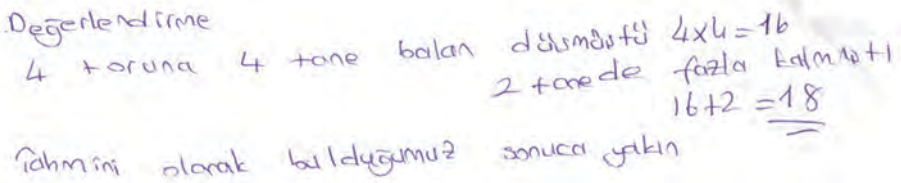 Değerlendirme
4 toruna 4 tane balon düşmüştü 4x4=16
2 tanede fazla kalmıştı
16+2=18
Tahmini olarak bulduğumuz sonuca yakın